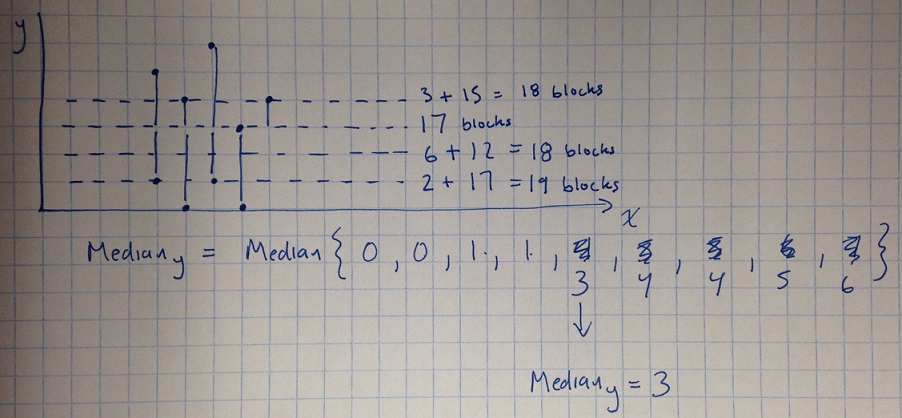 y
3 + 15 = 18 blocks
17 blocks
6 + 12 = 18 blocks
2 + 17 = 19 blocks
x
Median y = Median { 0 , 0 , 1 , 1 , 3 , 4 , 4 , 5 , 6 }
Median y = 3